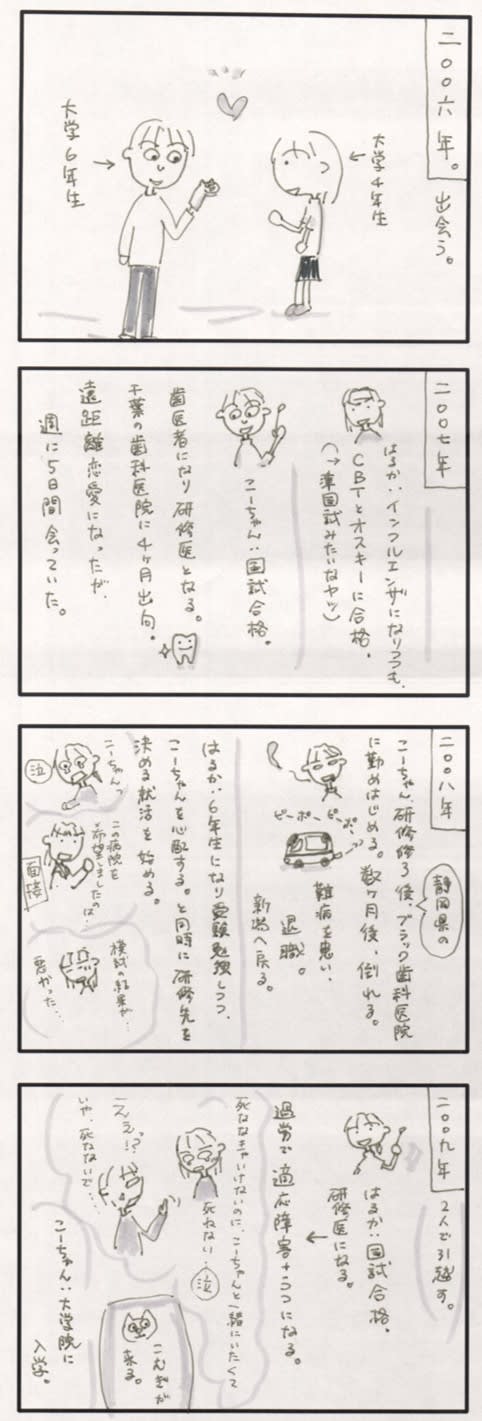 二〇〇六年。
出会う。
大学4年生
大学6年生
二〇〇七年
はるか:インフルエンザになりつつも、
CBTとオスキーに合格。
(→準国試みたいなヤツ)
こーちゃん:国試合格。
歯医者になり研修医となる。
千葉の歯科医院に4ヶ月出向。
遠距離恋愛になったが、
週に5日間会っていた。
二〇〇八年
静岡県の
こーちゃん、研修修了後、ブラック歯科医院
に勤めはじめる。数ヶ月後、倒れる。
ピーポーピーポー
難病を患い、
退職。
新潟へ戻る。
はるか:6年生になり受験勉強しつつ、
こーちゃんを心配する。と同時に研修先を
決める就活を始める。
こーちゃんっ
泣
この病院を
希望しましたのは…
面接
模試の結果が…
悪かった…
二〇〇九年
2人で引越す。
はるか:国試合格。
研修医になる。
過労で適応障害+うつになる。
死ななきゃいけないのに、こーちゃんと一緒にいたくて
死ねない…
泣
ええっ!?
いや、死なないで…
こむぎが
来る。
こーちゃん:大学院に
入学。